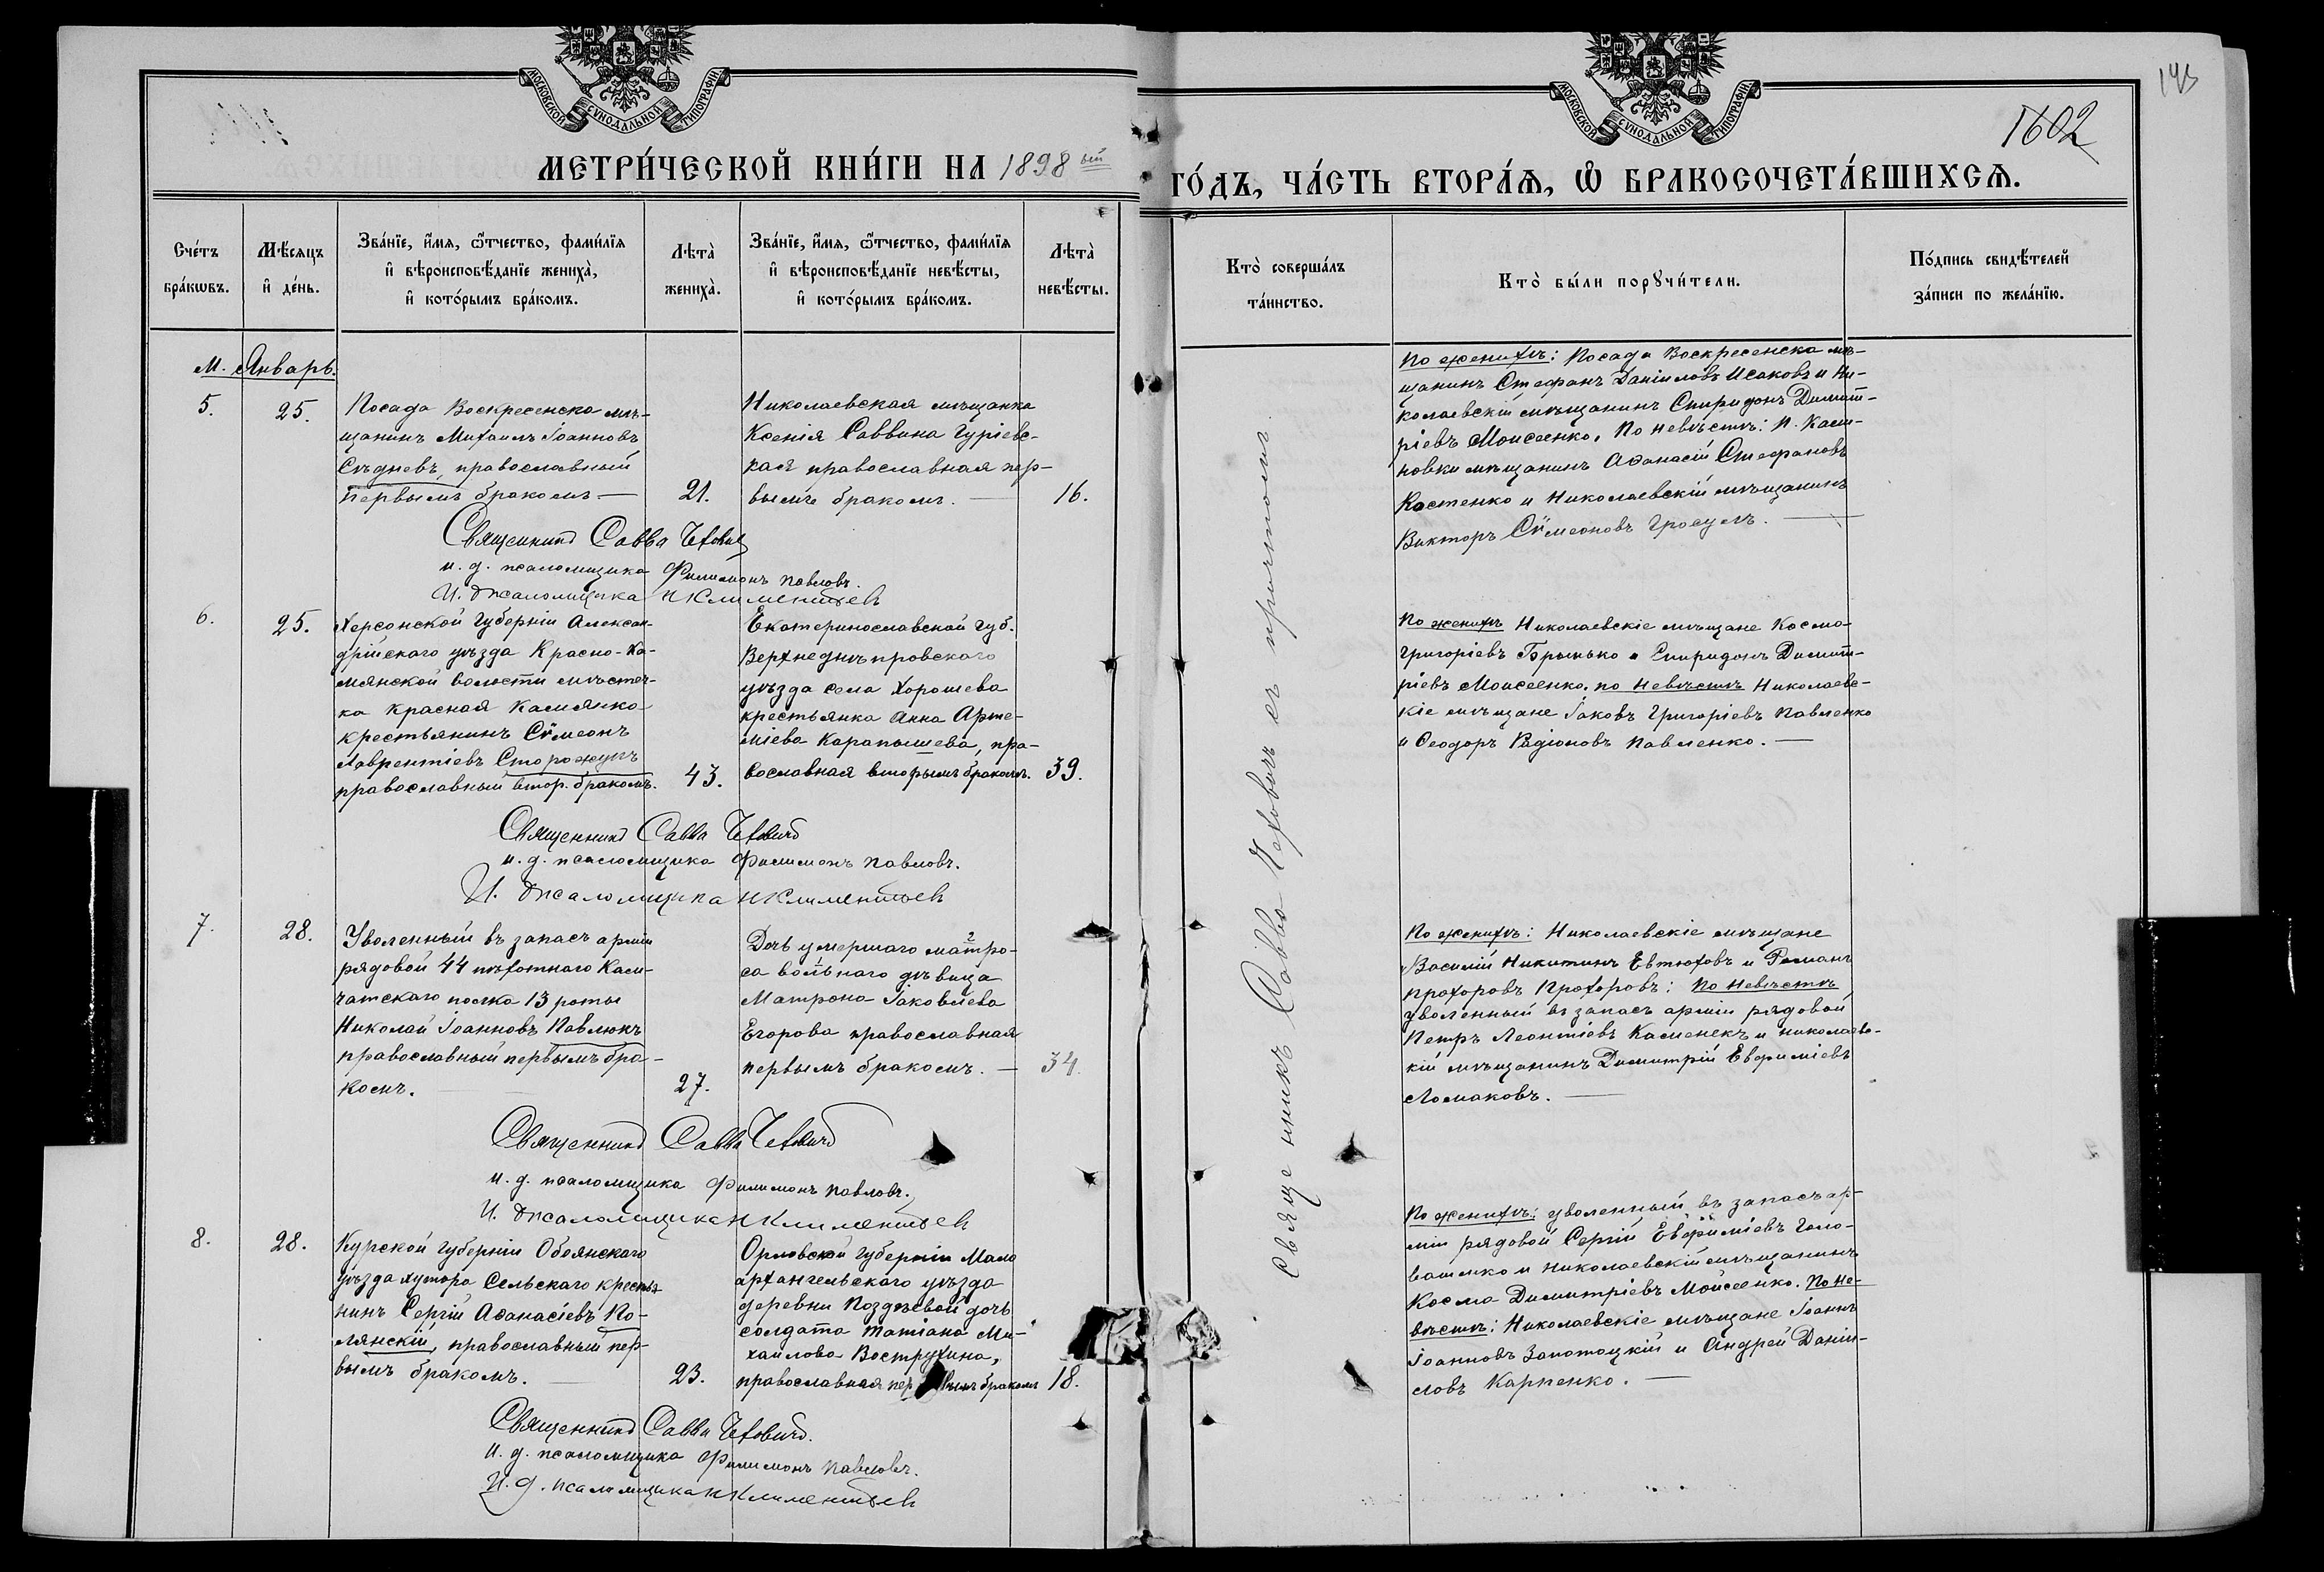 МОСКОВСКОЙ СѴНОДАЛЬНОЙ ТИПОГРАФІИ
МОСКОВСКОЙ СѴНОДАЛЬНОЙ ТИПОГРАФІИ
143
1602
МЕТРИ́ЧЕСКОЙ КНИ́ГИ НА 1898 ый
ГО́ДЪ, ЧА́СТЬ ВТОРА́Ѧ, Ѽ БРАКОСОЧЕТА́ВШИХСѦ.
Сче́тъ
бра́кѡвъ.
Мѣ́сѧцъ
и҆ де́нь.
Зва́нїе, и҆́мѧ, ѻ҆́тчество, фами́лїѧ
и҆ вѣроисповѣ́данїе жениха̀,
и҆ кото́рымъ бра́комъ.
Лѣта̀
жениха̀.
Зва́нїе, и҆́мѧ, ѻ҆́тчество, фами́лїѧ
и҆ вѣроисповѣ́данїе невѣ́сты,
и҆ кото́рымъ бра́комъ.
Лѣта̀
невѣ́сты.
Кто̀ соверша́лъ
та́инство.
Кто̀ бы́ли порꙋчи́тели.
По́дпись свидѣ́телей
за́писи по жела́нїю.
М. Январь.
5.
25.
Посада Воскресенска мѣ-
щанинъ Михаилъ Іоанновъ
Съедневъ, православный
первымъ бракомъ —
21.
Николаевская мѣщанка
Ксенія Саввина Гуріевс-
кая православная пер-
вымъ бракомъ. —
16.
По женихѣ: Посада Воскресенска мѣ-
щанинъ Стефанъ Даніиловъ Исаковъ и Ни-
колаевскій мѣщанинъ Спиридонъ Димит-
ріевъ Моисеенко. По невѣстѣ: п. Кали-
новки мѣщанинъ Аѳанасій Стефановъ
Костенко и Николаевскій мѣщанинъ
Викторъ Сѵмеоновъ Гросулъ. —
Священникъ Савва Чехович
и. д. псаломщика Филимонъ Павловъ.
И. д псаломщика Н Климентьев
6.
25.
Херсонской губерніи Алексан-
дрійскаго уѣзда Красно-Ка-
мянской волости мѣстеч-
ка Красная Каменка
крестьянинъ Сѵмеонъ
Лаврентіевъ Сторожукъ
православный втор. бракомъ.
43.
Екатеринославской губ.
Верхнеднѣпровскаго
уѣзда села Хорошева
крестьянка Анна Арте-
міева Карапышева, пра-
вославная вторымъ бракомъ.
39.
По женихѣ Николаевскіе мѣщане Косма
Григоріевъ Брынько и Спиридонъ Димит-
ріевъ Моисеенко. по невѣстѣ Николаевс-
кіе мѣщане Іаковъ Григоріевъ Павленко
и Ѳеодоръ Родіоновъ Павленко. —
Священникъ Савва Чеховичъ
и. д. псаломщика Филимонъ Павловъ.
И. д псаломщика Н Климентьев
7.
28.
Уволенный въ запасъ арміи
рядовой 44 пѣхотнаго Кам-
чатскаго полка 13 роты
Николай Іоанновъ Павлюкъ
православный первымъ бра-
комъ. —
27.
Дочь умершаго матро-
са вольнаго дѣвица
Матрона Іаковлева
Егорова православная
первымъ бракомъ. —
34.
По женихѣ: Николаевскіе мѣщане
Василій Никитинъ Евтюховъ и Романъ
Прохоровъ Прохоровъ: По невѣстѣ
уволенный въ запасъ арміи рядовой
Петръ Леонтіевъ Каменекъ и николаевс-
кій мѣщанинъ Димитрій Евфиміевъ
Ломаковъ. —
Священникъ Савва Чеховичъ
и. д. псаломщика Филимонъ Павловъ.
И. д псаломщика Н Климентьев
8.
28.
Курской губерніи Обоянскаго
уѣзда хутора Сельскаго крестья
нинъ Сергій Аѳанасіевъ По-
лянскій, православный пер-
вымъ бракомъ. —
23.
Орловской губерніи Мало
архангельскаго уѣзда
деревни Поздѣевой дочь
солдата Татіана Ми-
хаилова Вострухина,
православная первымъ бракомъ
18.
По женихѣ: уволенный въ запасъ ар-
міи рядовой Сергій Евфиміевъ Голо-
вашко и николаевскій мѣщанинъ
Косма Димитріевъ Моисеенко. По не-
вѣстѣ: Николаевскіе мѣщане Іоаннъ
Іоанновъ Запотоцкій и Андрей Даніи-
ловъ Карпенко. —
Священникъ Савва Чеховичъ.
и. д. псаломщика Филимонъ Павловъ.
И. д. псаломщика Н Климентьев
Священникъ Савва Чеховичъ съ причтомъ